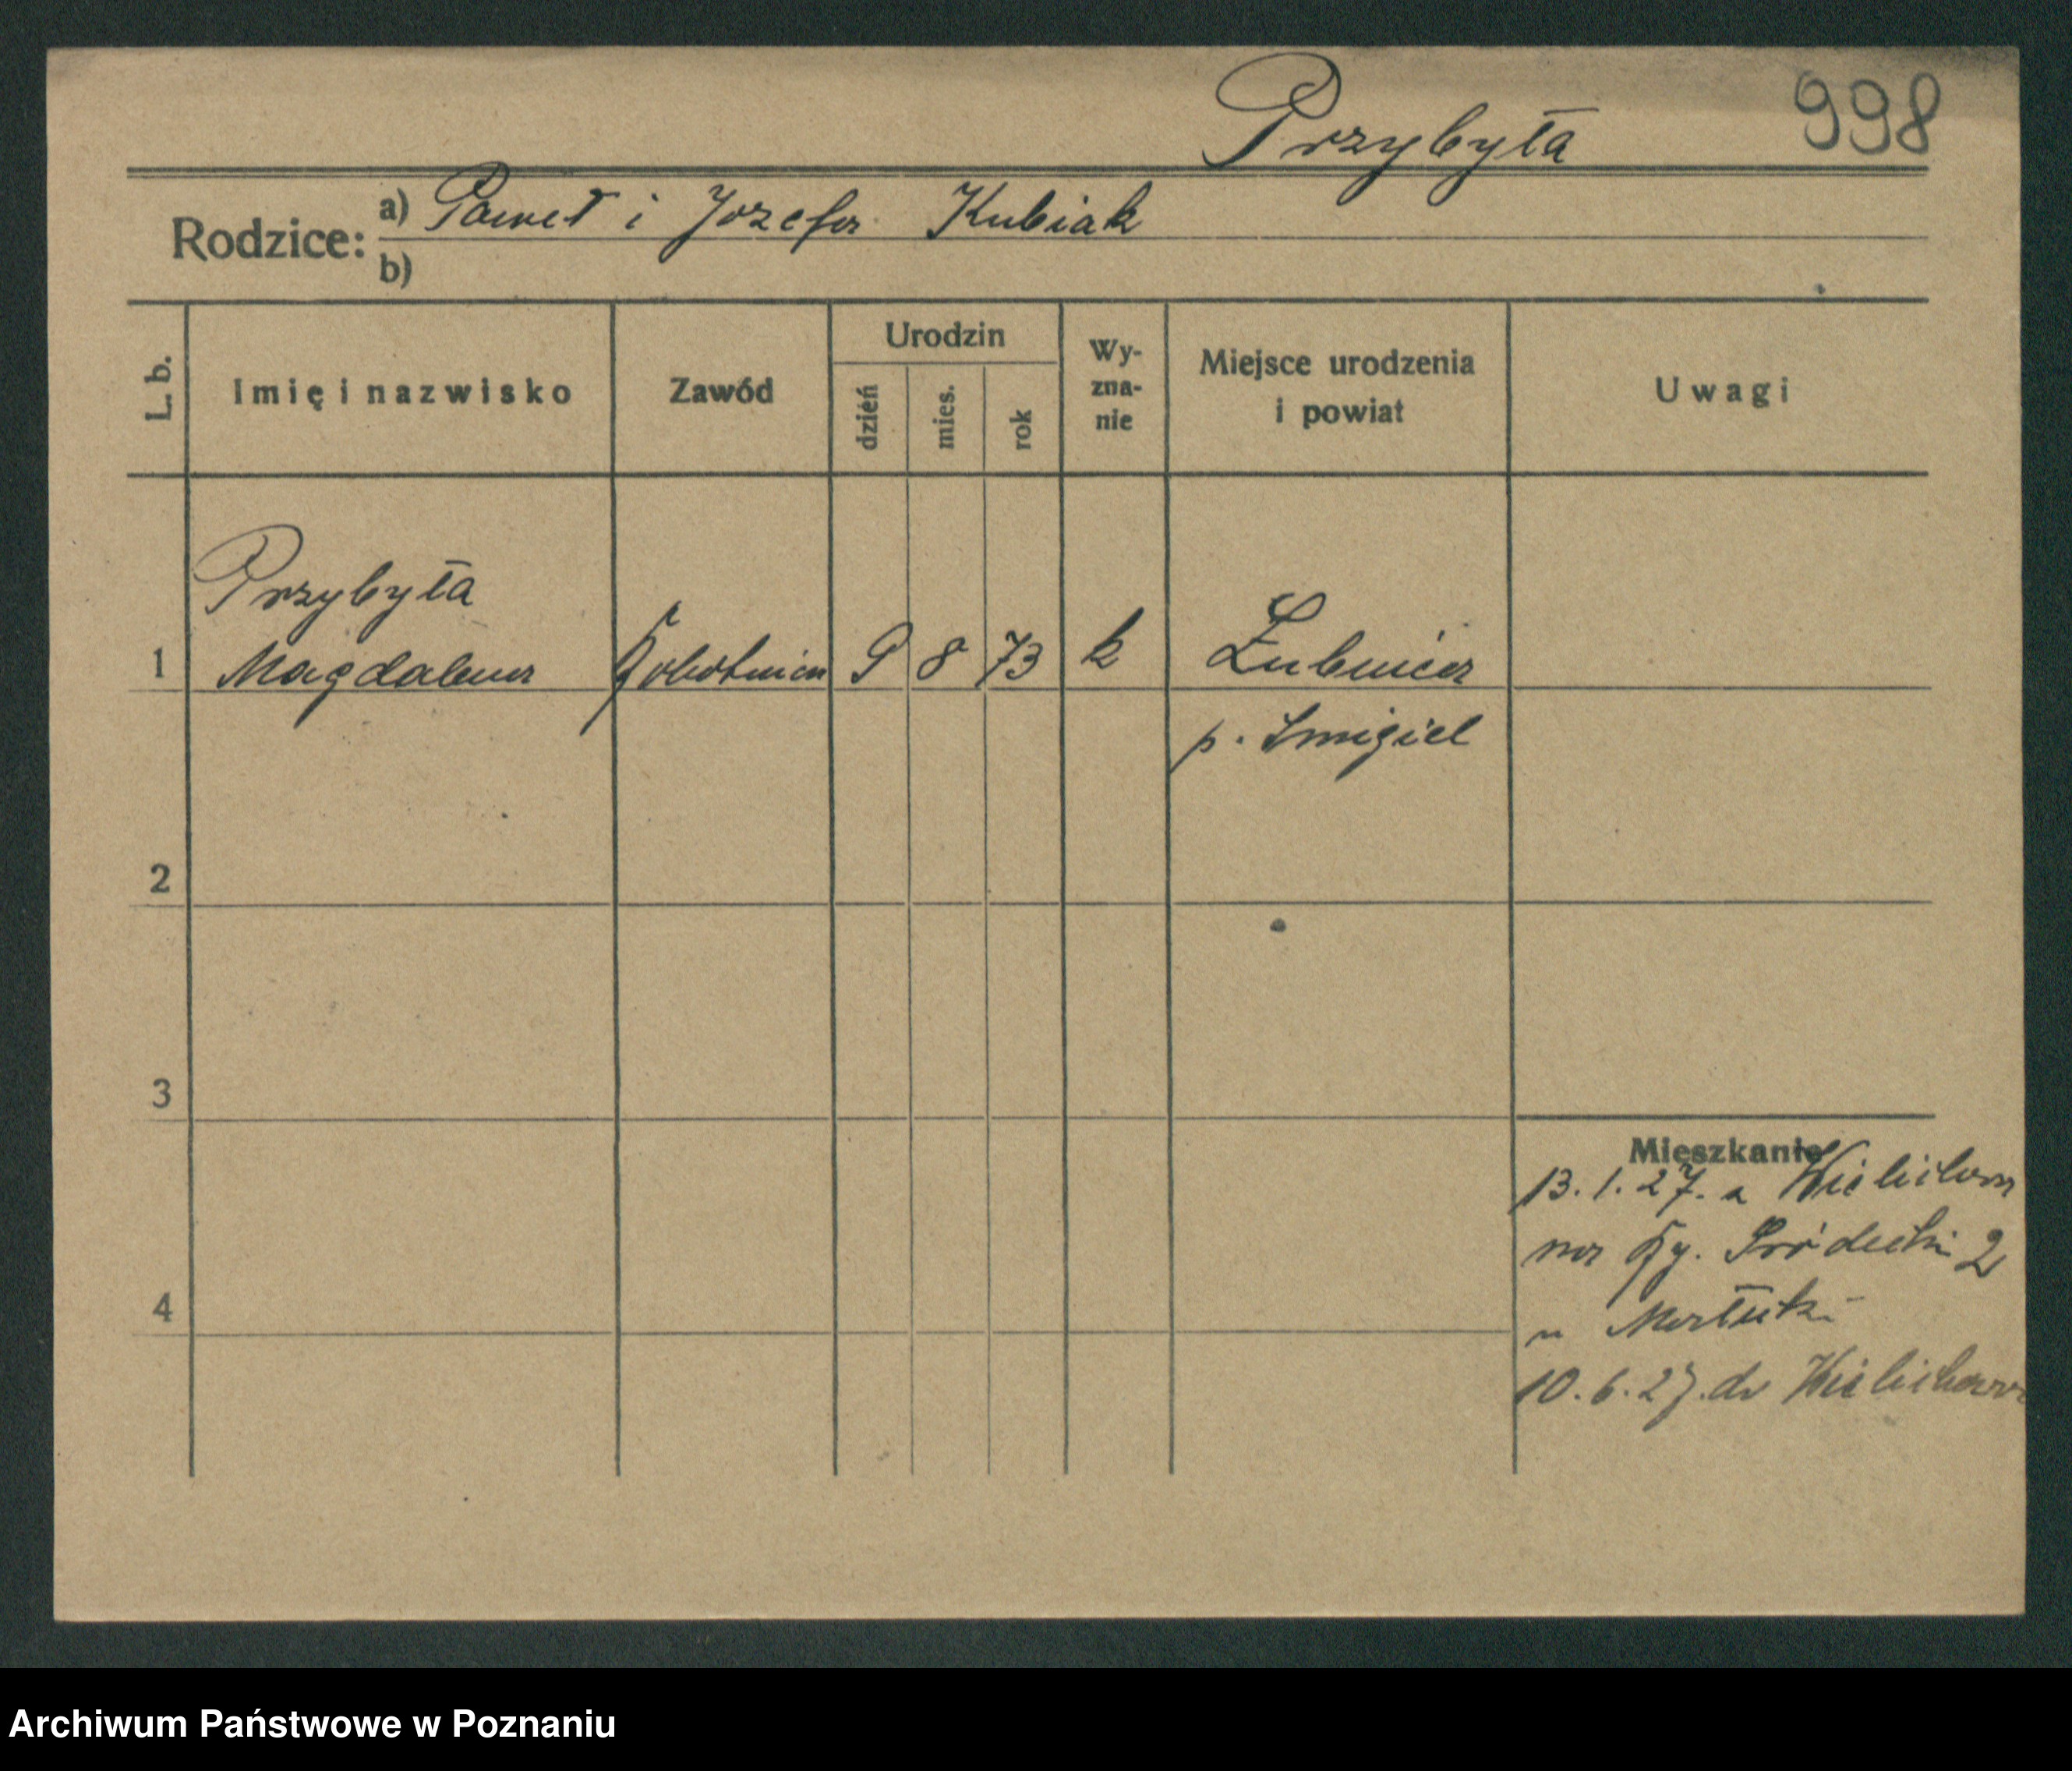 Przybyła 998
Rodzice: a) Paweł i Jozefa Kubiak
b)
L. b. Imię i nazwisko Zawód Urodzin dzień mies. rok Wy-zna-nie Miejsce urodzenia i powiat Uwagi
Przybyła
1 Magdalena Robotnica 9 8 73 k Łubnica
p. Smigiel
2
3
Mieszkanie
13.1.27. z Wielichowa
na Ry. Śródecki 2
4
u
10.6.27. do Wielichowa
Archiwum Państwowe w Poznaniu